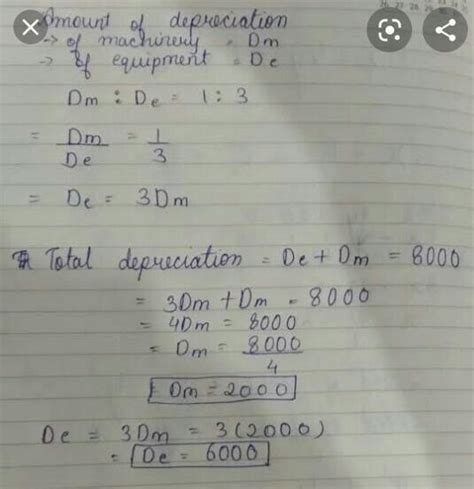 Amount of depreciation
→ of machinery = Dm
→ of equipment = De
Dm : De = 1 : 3
= Dm/De = 1/3
= De = 3Dm
Total depreciation = De + Dm = 8000
= 3Dm + Dm = 8000
= 4Dm = 8000
= Dm = 8000/4
Dm = 2000
De = 3Dm = 3(2000)
= De = 6000